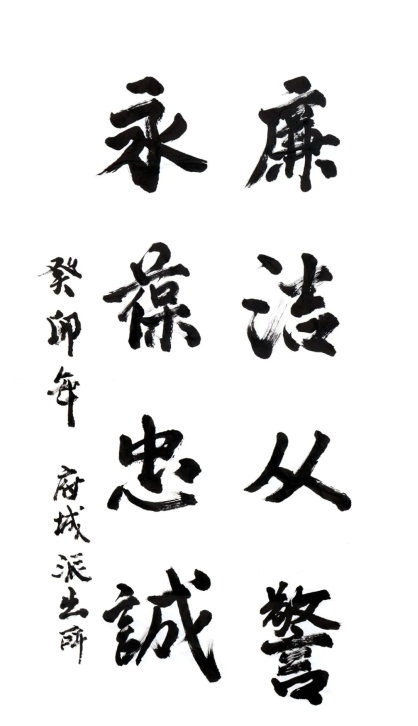 廉洁从警
永葆忠誠
癸卯年 府城派出所